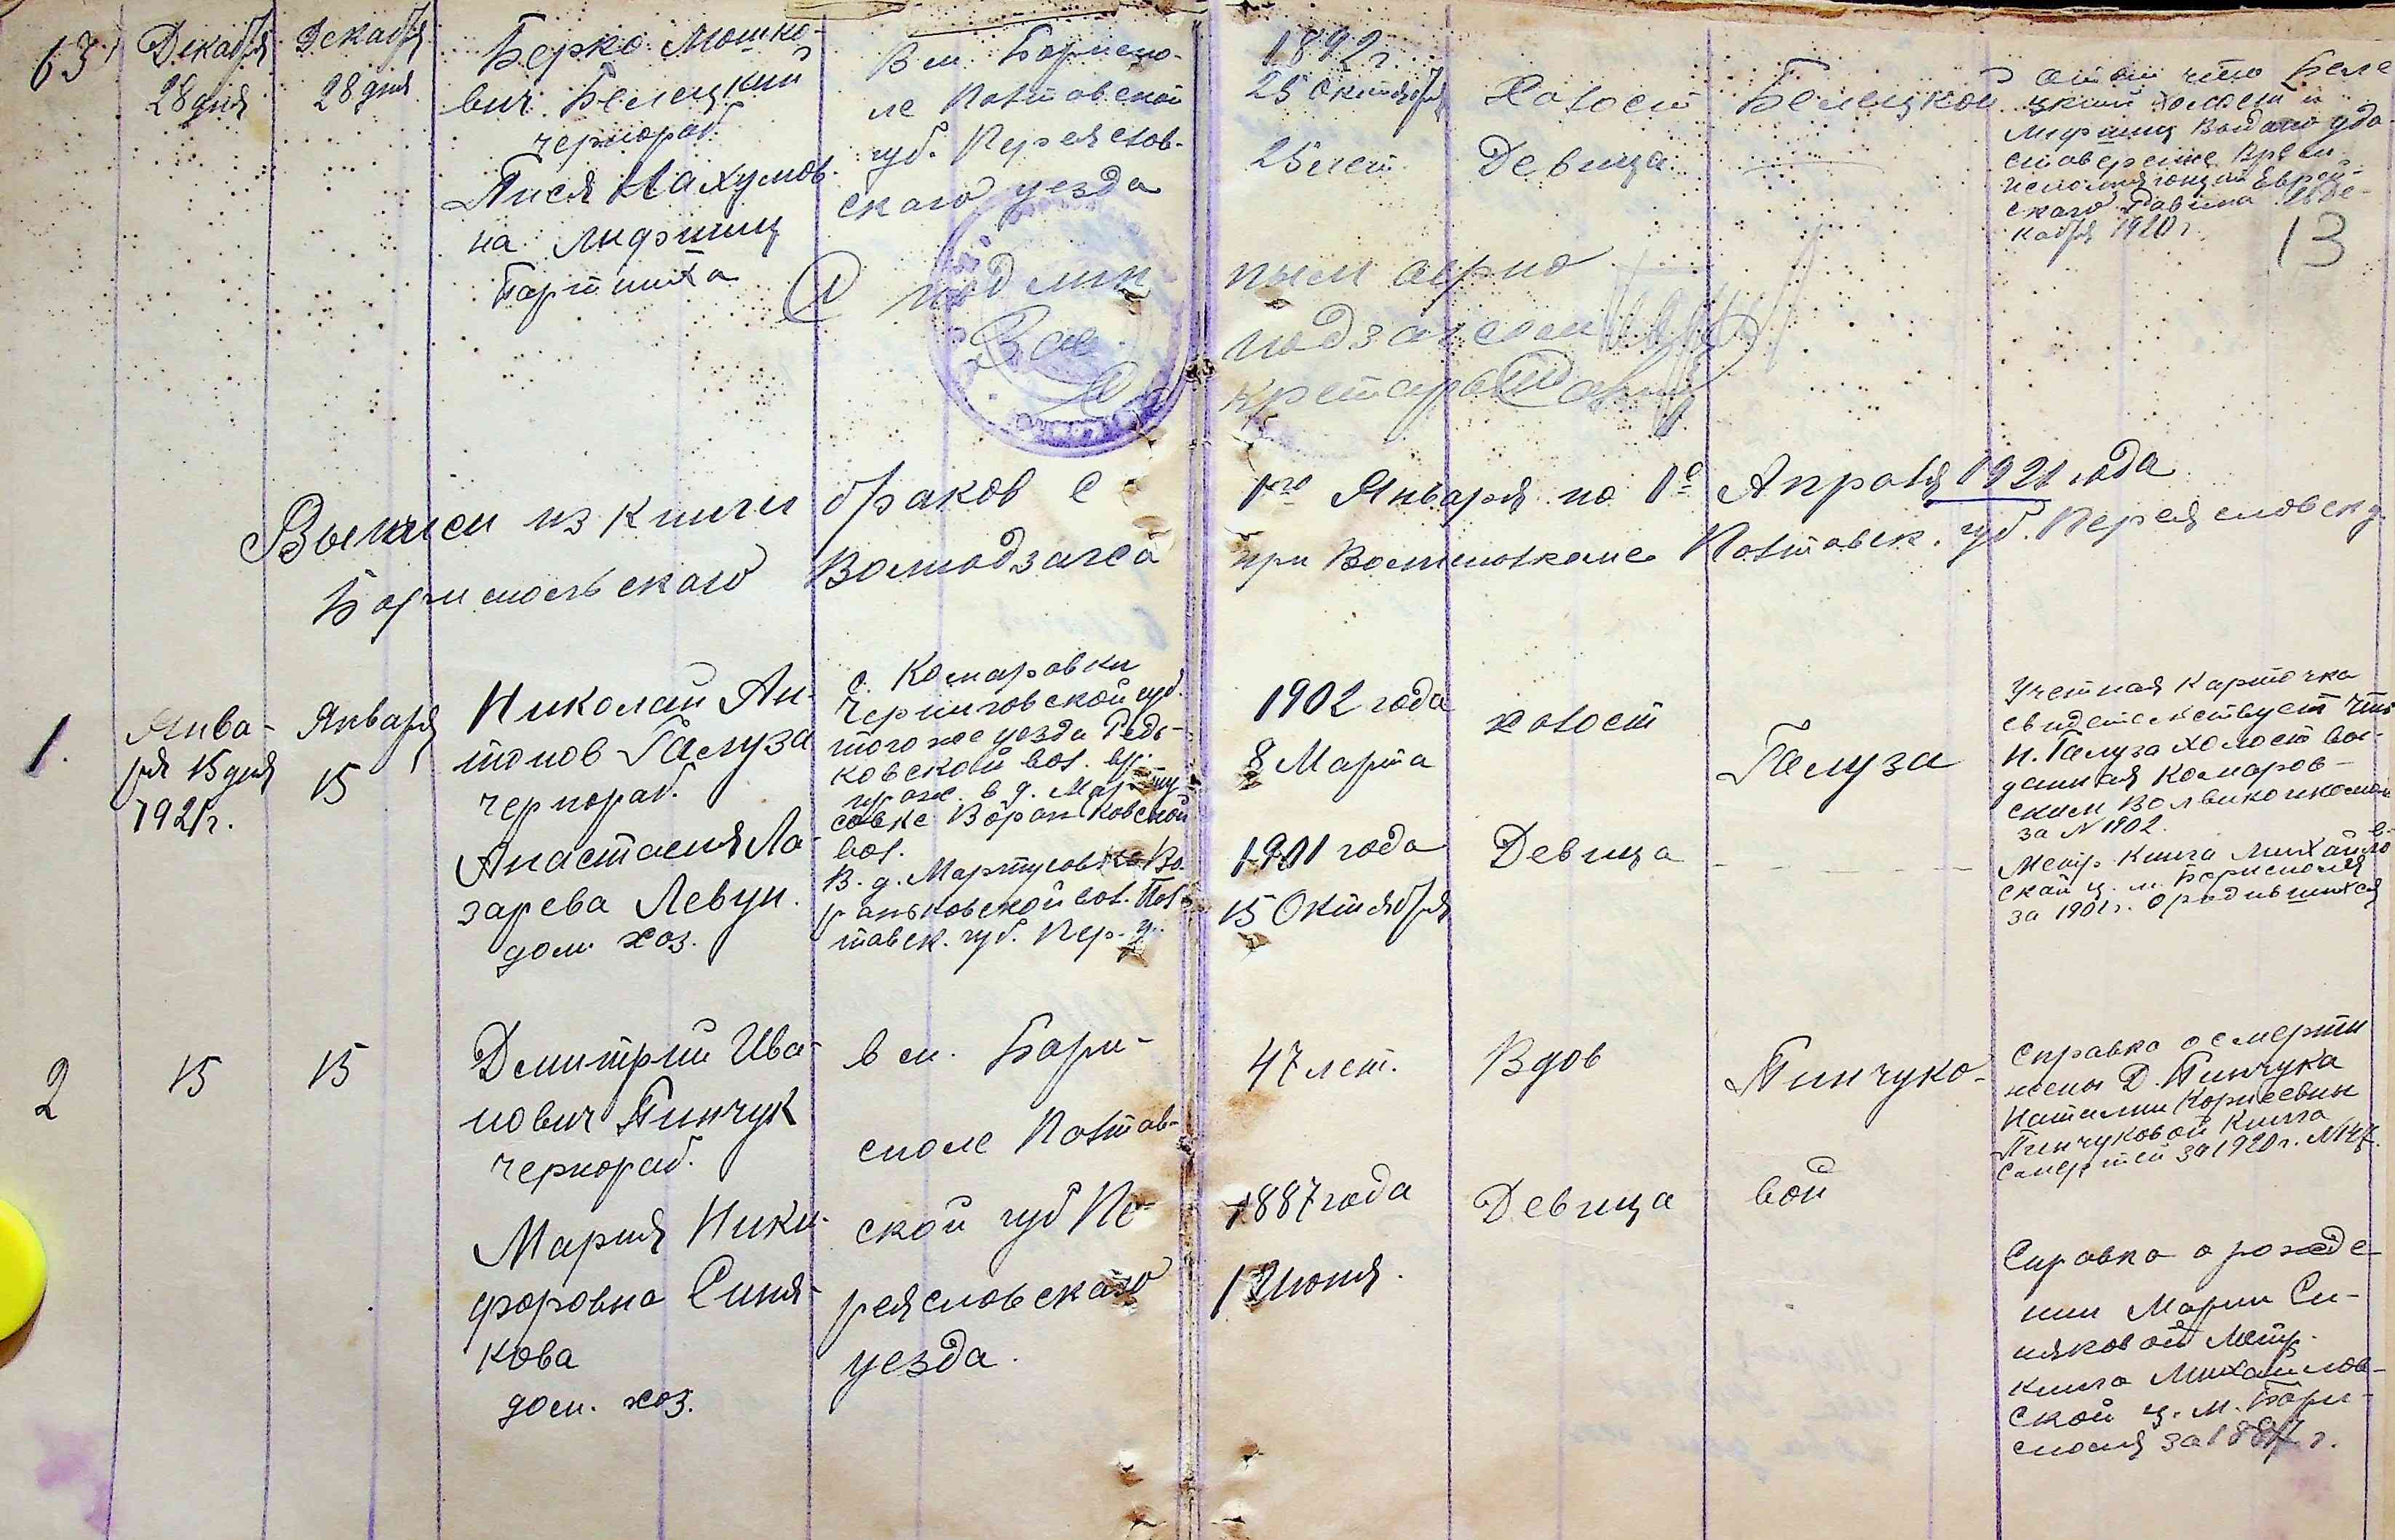 63)
Декабря
28 дня
Декабря
28 дня
Берко Мошко-
вич Белецкий
чернораб.
Пися Нахумов-
на Лифшиц
В м. Борисpo-
ле Полтавской
губ. Переяслов-
скаго уезда
1892 г.
25 Октября
25 лет
Холост
Девица
Белецкой
что Беле
цкий холост и
Лифшиц выдано удо-
стоверение Врем.
исполняющим Еврей-
скаго Равина 28 Де-
кабря 1920 г.
13
С подлин
ным верно
Зав.
подзагсом
кретарь
Выписи из книги браков с 1го Января по 1е Апреля 1921 года
Бориспольскаго Волподзагса при Волисполкоме Полтавск. губ. Переясловск у.
1.
Янва-
ря 15 дня
1921 г.
Января
15
Николай Ан-
тонов Галуза
чернораб.
Анастасия Ла-
зарева Левун.
дом. хоз.
с. Комаровки
Черниговской губ.
того же уезда Редь-
ковской вол.
прож. в д. Марту-
совке Вороньковской
вол.
В. д. Мартусовке Во-
раньковской вол. Пол-
тавск. губ. Пер. у.
1902 года
8 Марта
1901 года
15 Октября
холост
Девица
Галуза
Учетная Карточка
свидетельствует что
Н. Галуза холост вы-
данная Комаров-
ским Волвиконкомом
за N 1902.
Метр. Книга Михайлов-
ской ц. м. Борисполя
за 1901 г. о родившихся
2
15
15
Димитрий Ива-
нович Пинчук
чернораб.
Мария Ники-
форовна Синя-
кова
дом. хоз.
в м. Бори-
споле Полтав-
ской губ Пе-
реясловскаго
уезда.
47 лет.
1887 года
Июня.
Вдов
Девица
Пинчуко-
вой
Справка о смерти
жены Д. Пинчука
Наталии Корнеевны
Пинчуковой Книга
Смертей за 1920 г. N 147.
Справка о рожде-
нии Марии Си-
няковой Метр.
книга Михайлов-
ской ц. м. Бори-
споля за 1887 г.